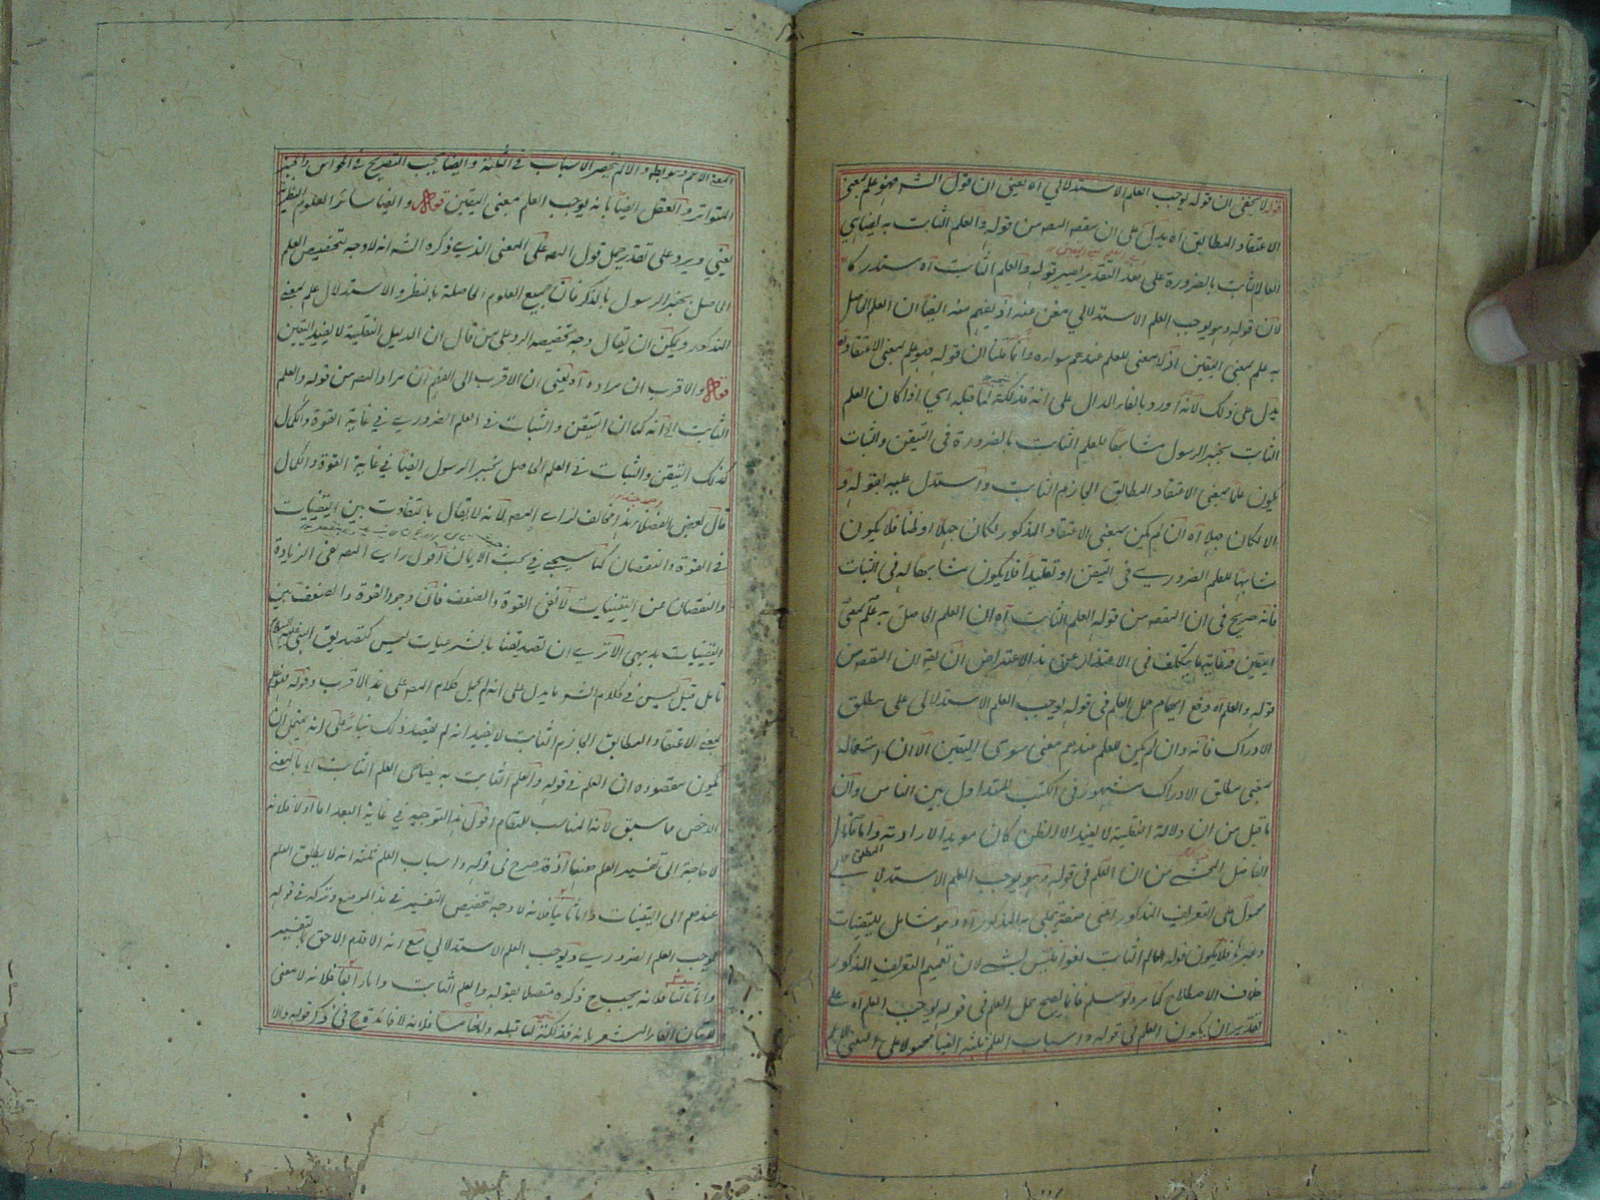 قوله لا يخفى ان قوله يوجب العلم الاستدلالي الا يعنى ان قول الشه فهو علم بمعنى
الاعتقاد المطابق اه يدل على ان مقصد المصه من قوله والعلم الثابت به يضاهي
العلم الثابت بالضرورة على هذا التقدير تفسير قوله والعلم الثابت اه مستدركا
لان قوله وهو يوجب العلم الاستدلالي مغن عنه اذ يفهم منه ايضا ان العلم الحاصل
به علم بمعنى اليقين اذ لا معنى للعلم عندهم سواه وانما قلنا ان قوله فهو علم بمعنى الاعتقاد اه
يدل على ذلك لانه اورد بالفاء الدال على انه فذلكة لما قبله اي اذا كان العلم
الثابت بخبر الرسول مشابها للعلم الثابت بالضرورة في التيقن والثبات
يكون علما بمعنى الاعتقاد المطابق الجازم الثابت واستدل عليه بقوله و
الا لكان جهلا اه ان لم يكن بمعنى الاعتقاد المذكور لكان جهلا او ظنا فلا يكون
مشابها للعلم الضروري في التيقن او تقليدا فلا يكون مشابها له في الثبات
فانه صريح في ان المقصه من قوله العلم الثابت اه ان العلم الحاصل به علم بمعنى
اليقين وغاية ما يتكلف في الاعتذار عن هذا الاعتراض ان يقو ان المقصه من
قوله والعلم اه دفع ايهام حمل العلم في قوله يوجب العلم الاستدلالي على مطلق
الادراك فانه وان لم يكن للعلم عندهم معنى سوى اليقين الا ان استعماله
بمعنى مطلق الادراك مشهور في الكتب المتداول بين الناس وان
ما قيل من ان دلالة النقلية لا يفيد الا الظن كان مويد الارادته واما ما قال
الفاضل المحشي من ان العلم في قوله وهو يوجب العلم الاستدلالي
محمول على التعريف المذكور اعنى صفة يتجلى به المذكور اه وهو شامل لليقينيات
وغيره فلا يكون قوله والعلم الثابت لغوا فليس بشيء لان تعميم التعريف المذكور
خلاف الاصطلاح كما مر ولو سلم فانما يصح حمل العلم في قوله يوجب العلم اه على
تقدير ان يكون العلم في قوله واسباب العلم ثلثة ايضا محمولا على المعنى الاعم
المعنى الاعم وهو بط والا لم ينحصر الاسباب في الثلثة وايضا يجب التصريح في الحواس والخبر
المتواتر والعقل ايضا بانه يوجب العلم بمعنى اليقين قوله وايضا سائر العلوم النظرية
يعنى ويرد على تقدير حمل قول المصه على المعنى الذي ذكره الشه انه لا وجه لتخصيص العلم
الحاصل بخبر الرسول بالذكر فان جميع العلوم الحاصلة بالنظر والاستدلال علم بمعنى
المذكور ويمكن ان يقال وجه تخصيصه الرد على من قال ان الدليل النقلية لا يفيد اليقين
قوله والاقرب ان مراده اه يعنى ان الاقرب الى الفهم ان مراد المصه من قوله والعلم
الثابت الخ انه كما ان التيقن والثبات في العلم الضروري في غاية القوة والكمال
كذلك التيقن والثبات في العلم الحاصل بخبر الرسول ايضا في غاية القوة والكمال
قال بعض الفضلاء هذا مخالف لراي المصه لانه لا يقال بالتفاوت بين اليقينيات
في القوة والنقصان كما سيجيء في بحث الايمان اقول راي المصه نفي الزيادة
والنقصان عن اليقينيات لا نفي القوة والضعف فان وجود القوة والضعف بين
اليقينيات بديهي الا ترى ان تصديقنا بالشرعيات ليس كتصديق النبي عليه السلام
تامل قيل ليس في كلام الشه ما يدل على انه لم يحمل كلام المصه على هذا الاقرب وقوله فهو علم
بمعنى الاعتقاد المطابق الجازم الثابت لا يفيد انه لم يقصد ذلك بناء على انه يحتمل ان
يكون مقصوده ان العلم في قوله والعلم الثابت به يضاهي العلم الثابت اه بالمعنى
الاخص ما سبق لانه المناسب للمقام اقول هذا التوجيه في غاية البعد اما اولا فلانه
لا حاجة الى تفسير العلم ههنا اذ قد صرح في قوله واسباب العلم ثلثة انه لا يطلق العلم
عندهم الى اليقينيات واما ثانيا فلانه لا وجه لتخصيص التفسير في هذا الموضع وتركه في قوله
يوجب العلم الضروري ويوجب العلم الاستدلالي مع انه الاقدم الاحق بالتفسير
واما ثالثا فلانه يجب ح ذكره متصلا بقوله والعلم الثابت واما رابعا فلانه لا معنى
للاتيان الفاء المشعر بانه فذلكة لما قبله واما خامسا فلانه لا فائدة ح في ذكر قوله والا